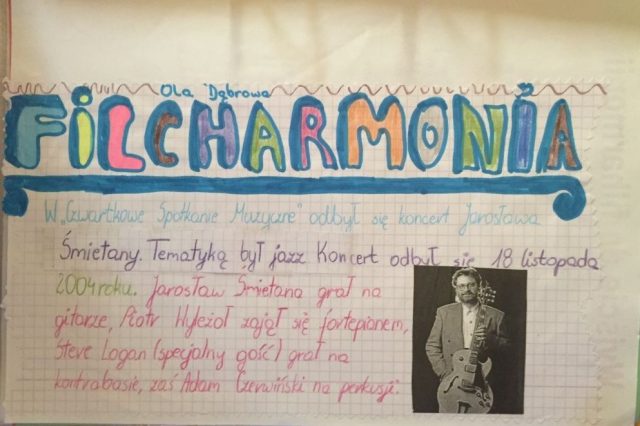 Ola Dąbrowa
FILCHARMONIA
W „Czwartkowe Spotkanie Muzyczne" odbył się koncert Jarosława
Śmietany. Tematyką był jazz Koncert odbył się 18 listopada
2004roku. Jarosław Śmietana grał na
gitarze, Piotr Wyleżoł zajął się fortepianem,
Steve Logan (specjalny gość) grał na
kontrabasie, zaś Adam Czerwiński na perkusji.